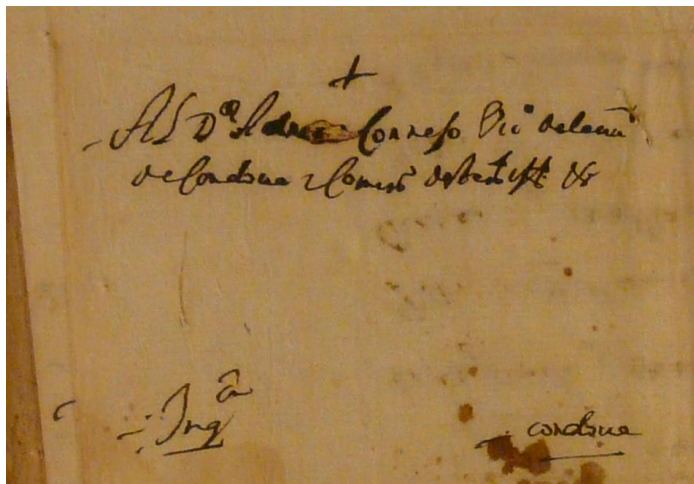 +
Al D.or Adrian Cornejo Vic.o de la ciu.d
de Cordoua i Comis.o del S.to off.o &
Inq.on
cordoua